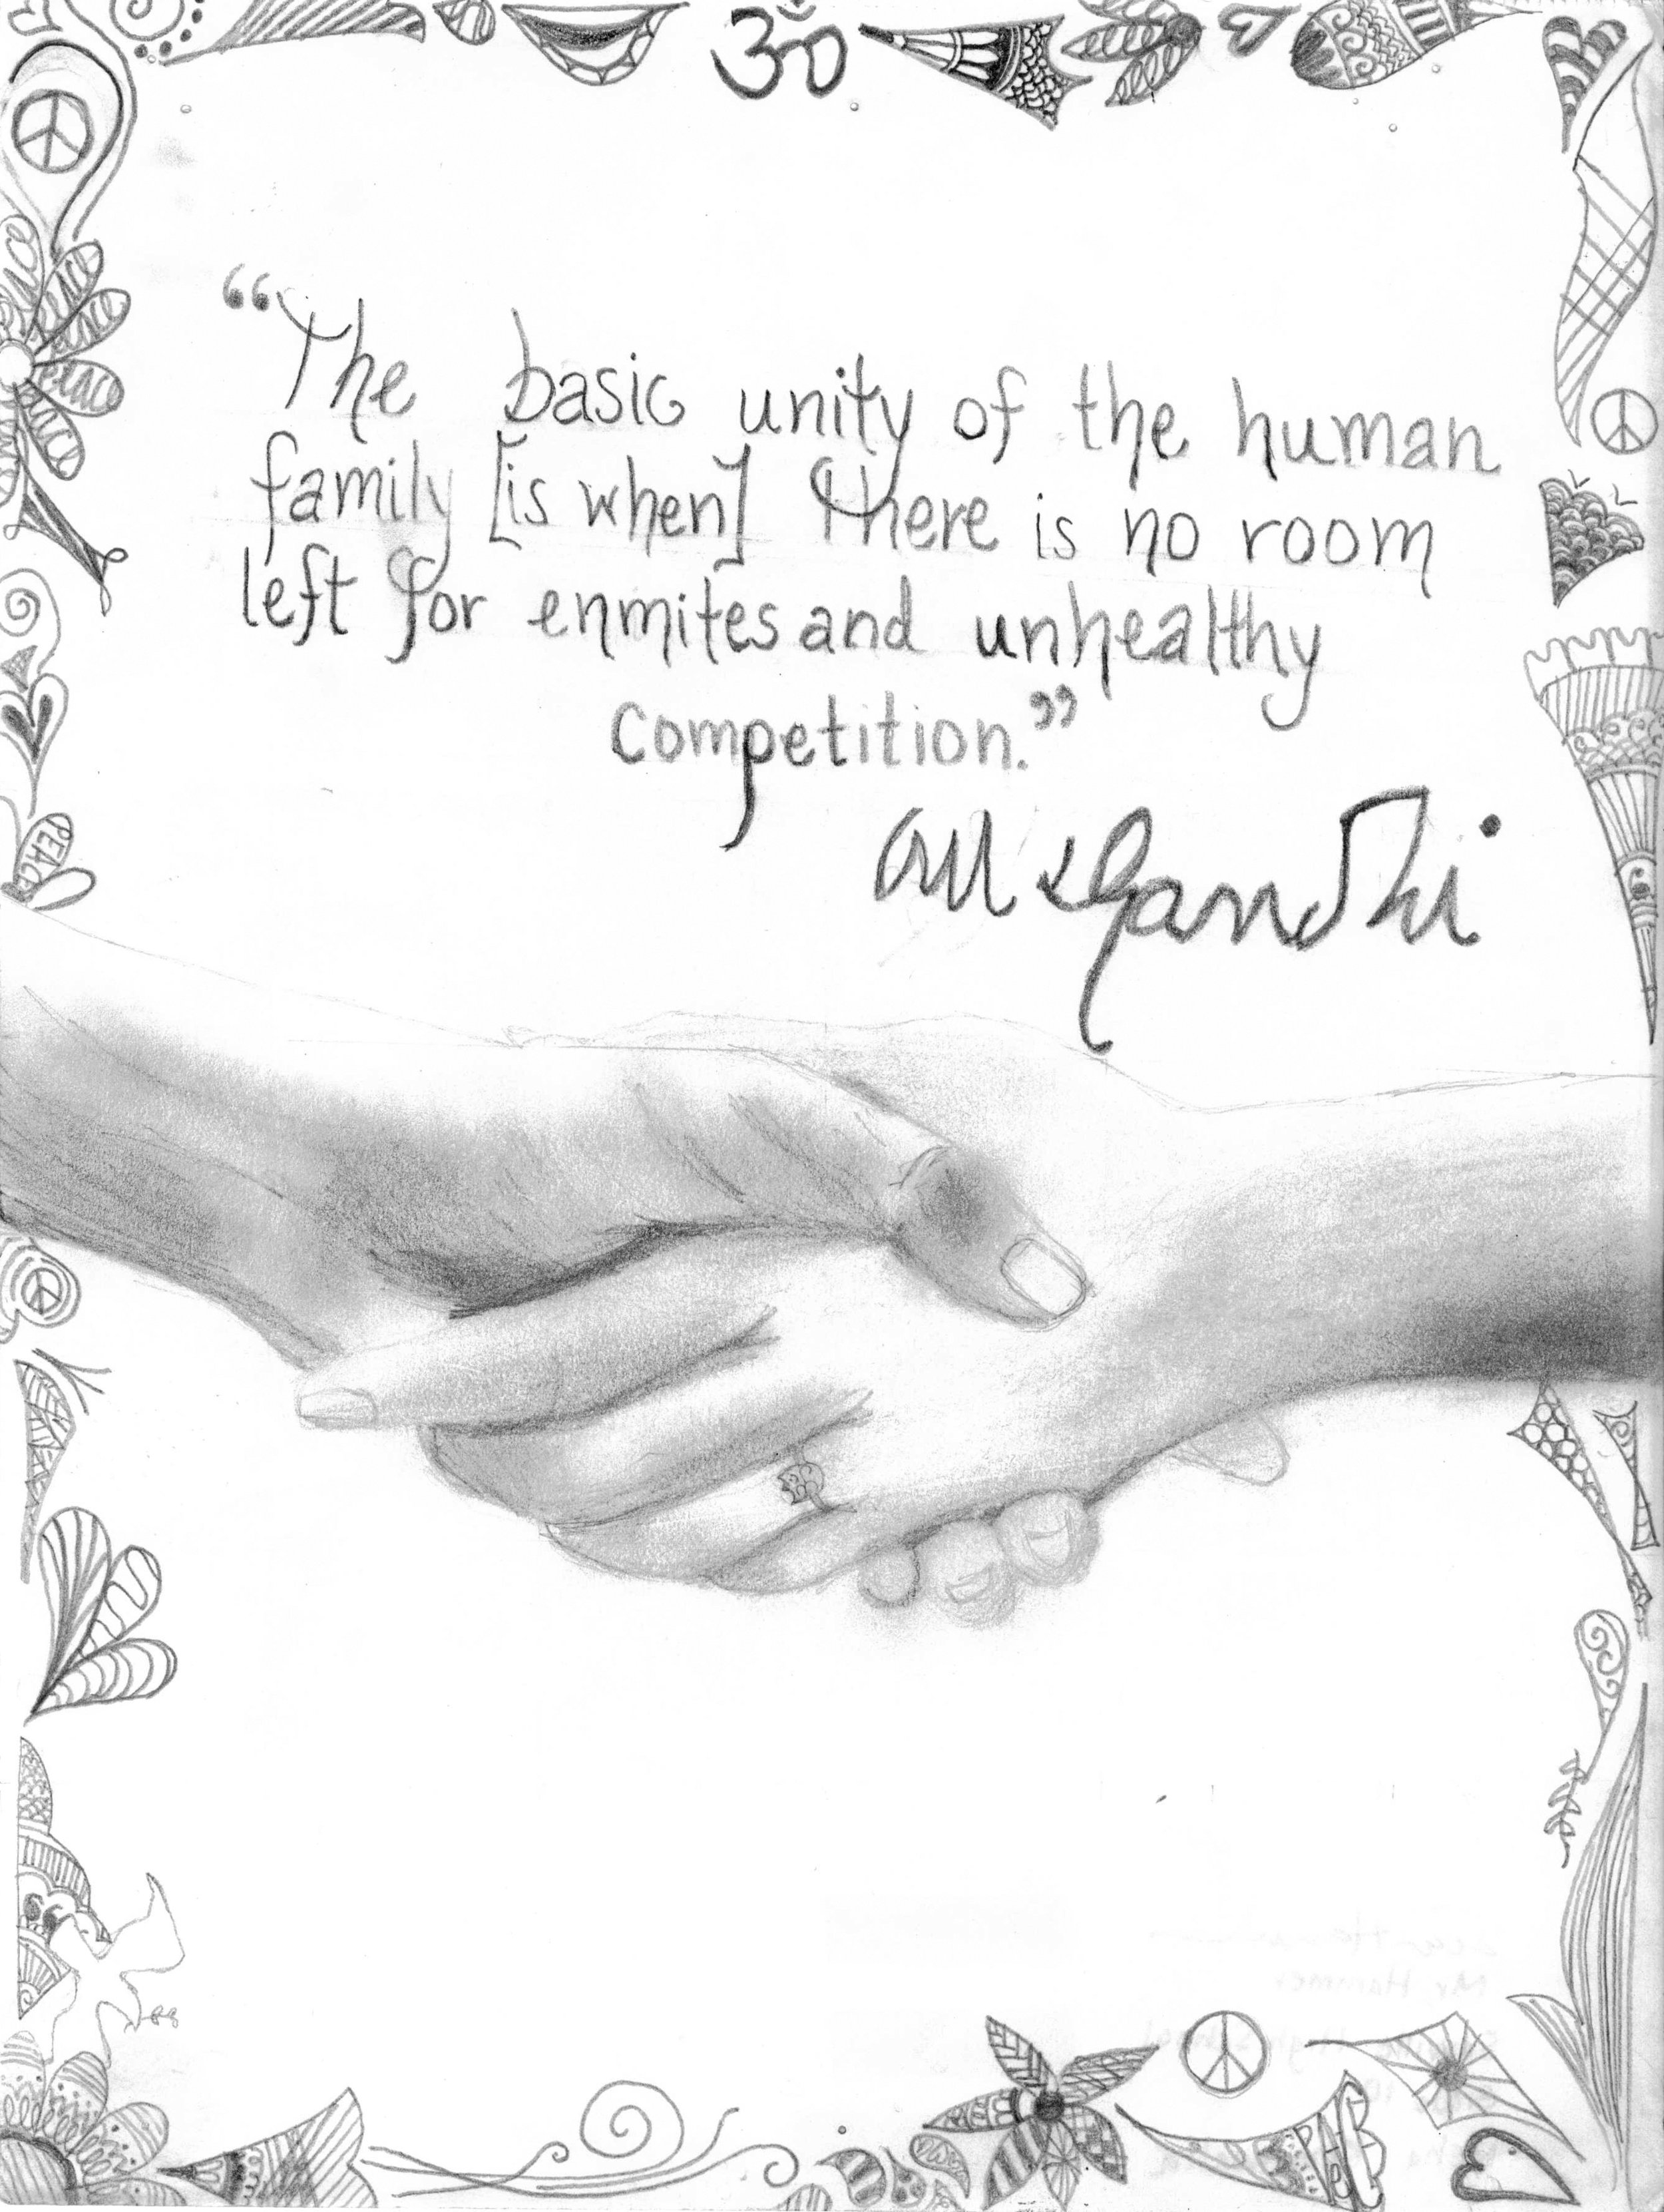 ॐ
“The basic unity of the human
family [is when] There is no room
left for enmites and unhealthy
competition.”
MKGandhi
peace
PEACE
Mr Hammer